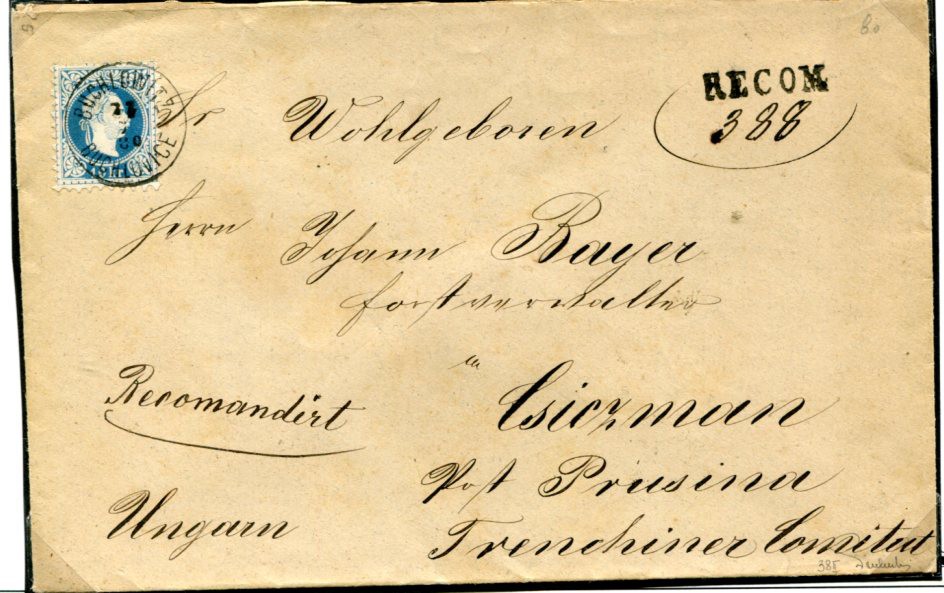 80
RECOM
388
BUCHLOWITZ
BUCHLOVICE
Sr Wohlgeboren
Herrn Johann Bayer
Forstverwalter
in
Csiczman
Recomandirt
Post Prusina
Ungarn
Trenchiner Comitat